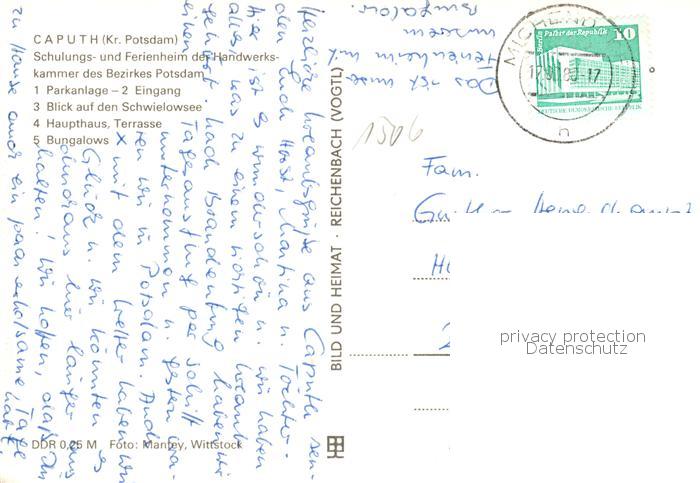 CAPUTH (Kr. Potsdam)
Schulungs- und Ferienheim der Handwerks-
kammer des Bezirkes Potsdam
1 Parkanlage – 2 Eingang
3 Blick auf den Schwielowsee
4 Haupthaus, Terrasse
5 Bungalows
Herzliche Urlaubsgrüße aus Caputh sen-
den Euch Horst, Martina u. Töchter.
Hier ist es wunderschön u. wir haben
alles, was zu einem richtigen Urlaub
gehört. Nach Brandenburg haben wir
einen Tagesausflug per Schiff
unternommen u. gestern wa-
ren wir in Potsdam. Auch
mit dem Wetter haben wir
Glück u. wir könnten es
durchaus hier länger aus-
halten! Wir hoffen, daß Ihr
zu Hause auch ein paar erholsame Tage
habt.
Das ist unser
Ferienheim mit
unserem
Bungalow.
BILD UND HEIMAT · REICHENBACH (VOGTL)
DDR 0,25 M Foto: Mantey, Wittstock
1506
Berlin Palast der Republik
10
DEUTSCHE DEMOKRATISCHE REPUBLIK
MICHENDO
n
Fam.
privacy protection
Datenschutz